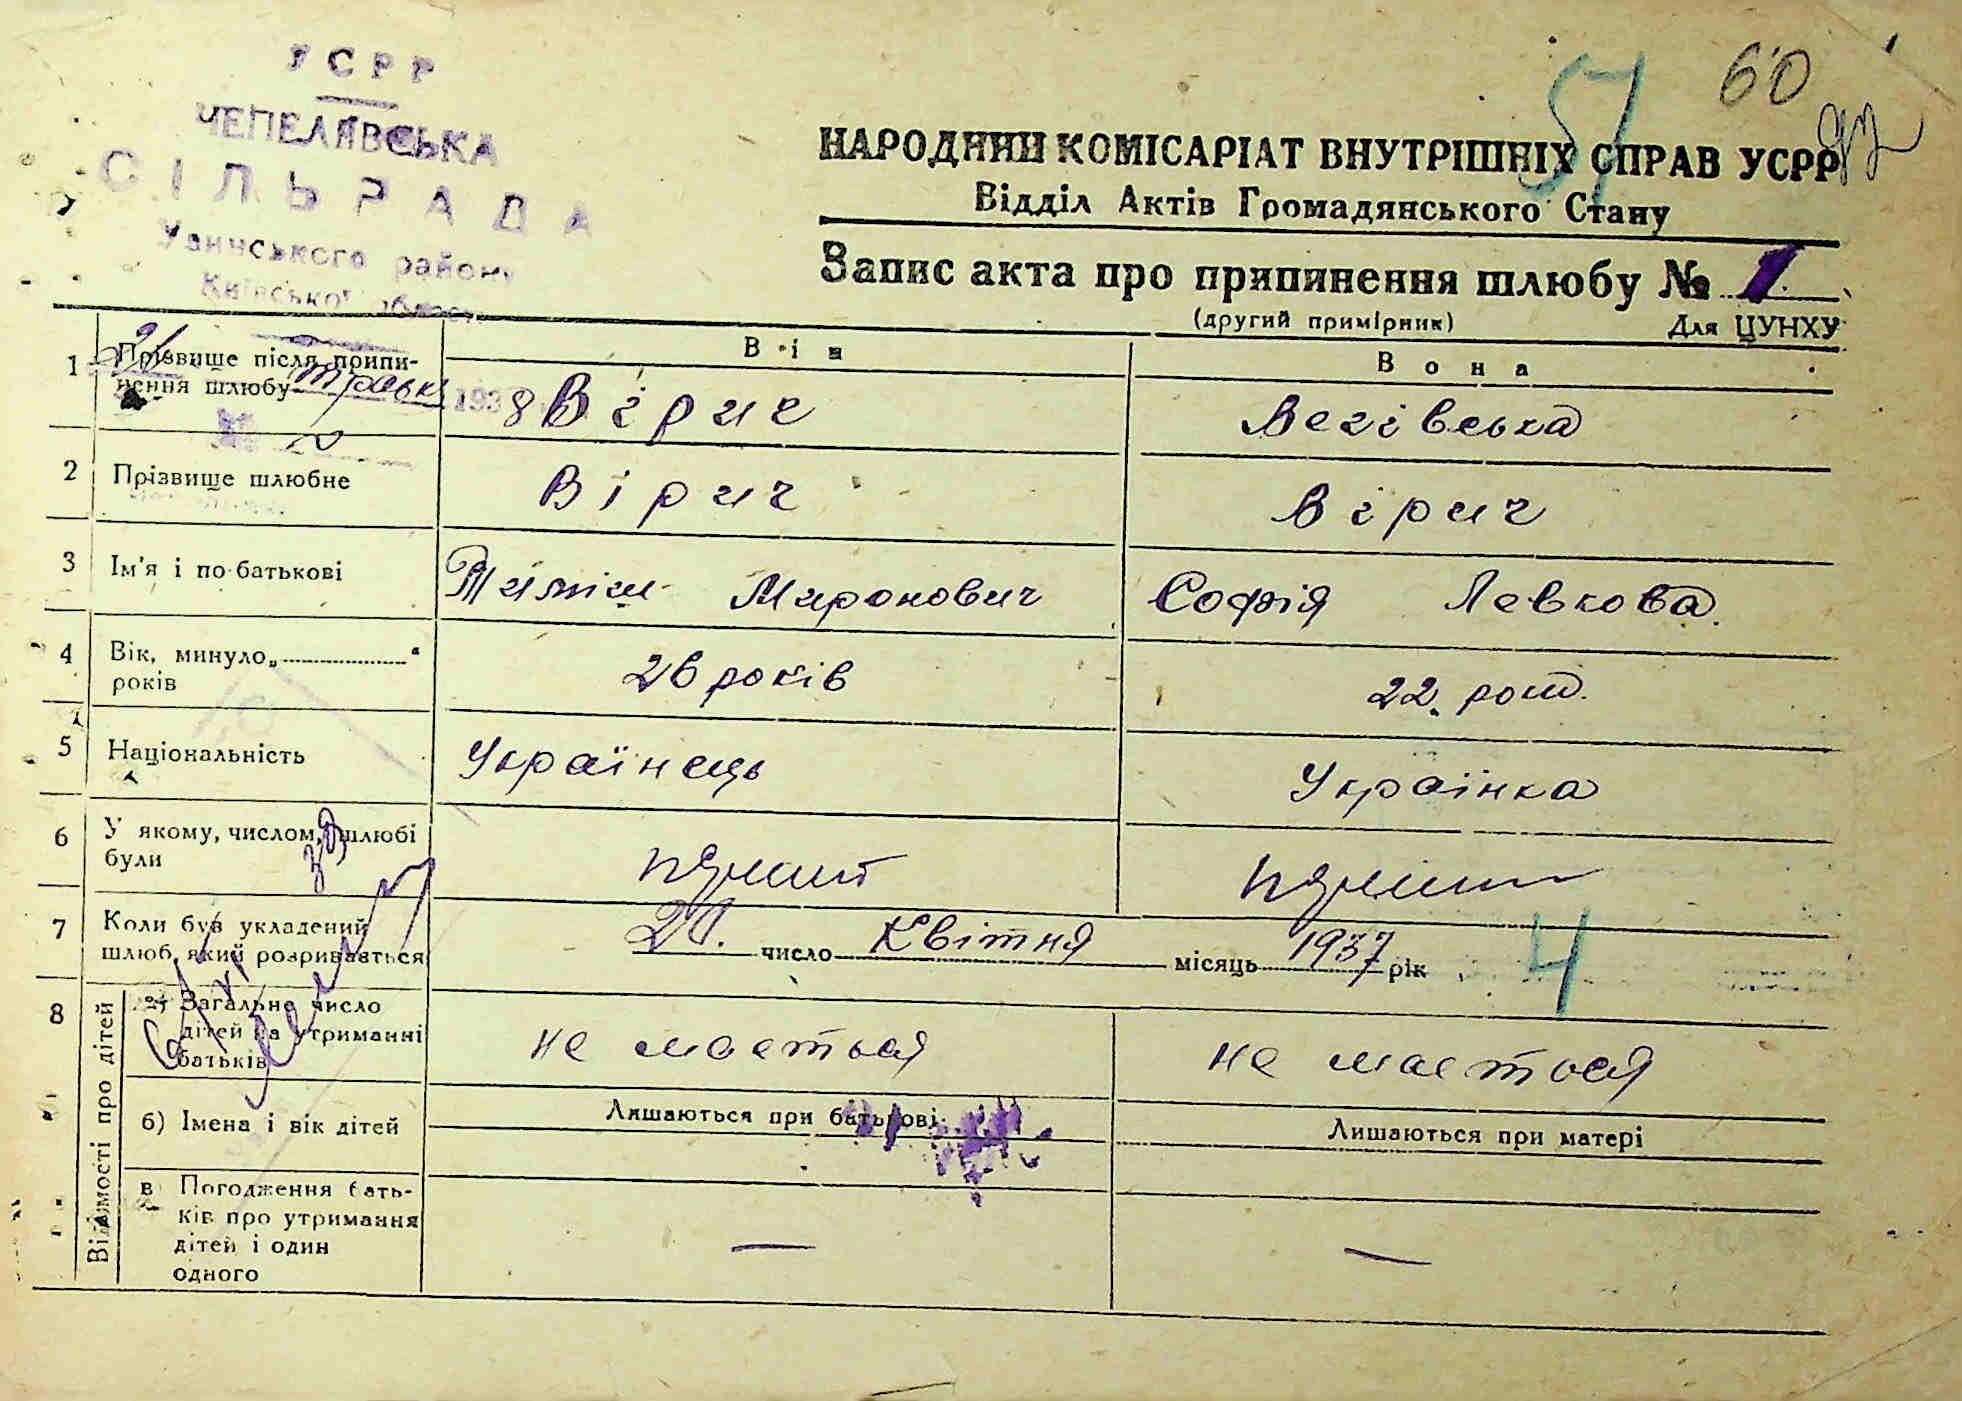 УСРР
ЧЕПЕЛІВСЬКА
СІЛЬРАДА
району
Київської області
60
57
НАРОДНИЙ КОМІСАРІАТ ВНУТРІШНІХ СПРАВ УСРР
Відділ Актів Громадянського Стану
Запис акта про припинення шлюбу № 1
(другий примірник) Для ЦУНХУ
Він Вона
1 Прізвище після припинення шлюбу Вірич
1938
2 Прізвище шлюбне Вірич Вірич
3 Ім'я і по-батькові Тиміш Миронович Софія Левкова
4 Вік, минуло „ “ років 26 років 22. рот.
5 Національність Українець Українка
6 У якому, числом, шлюбі були
7 Коли був укладений шлюб, який розривається число Квітня місяць 1937 рік
4
8 Відомості про дітей
а) Загальне число дітей на утриманні батьків не мається не мається
б) Імена і вік дітей Лишаються при батькові Лишаються при матері
в Погодження батьків про утримання дітей і один одного — —